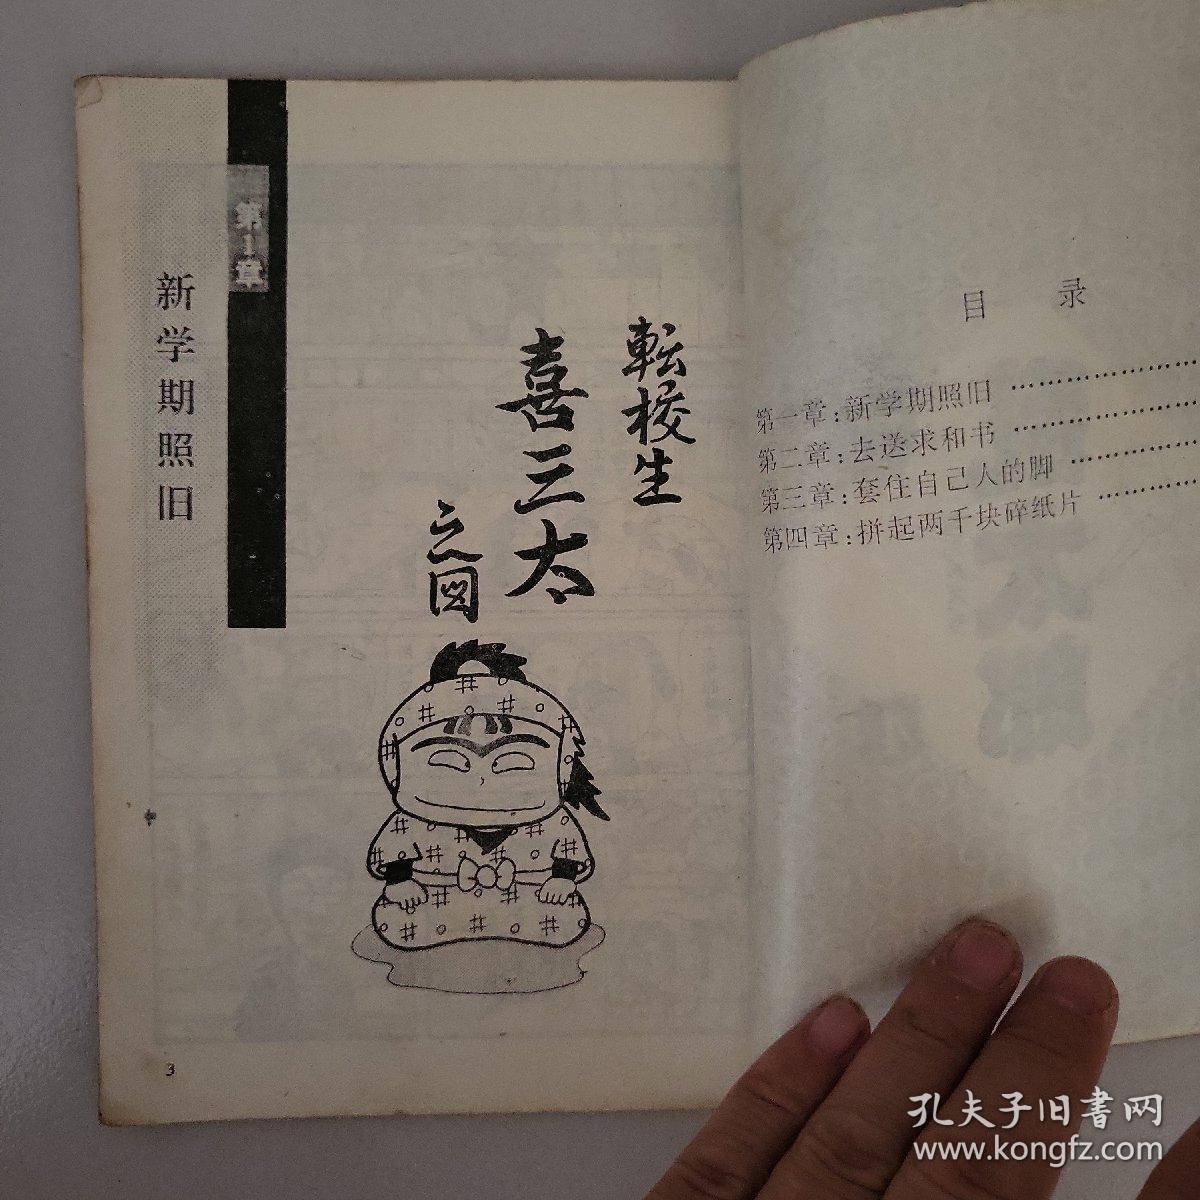 第1章
新学期照旧
転校生
喜三太
之図
3
目 录
第一章：新学期照旧……………………
第二章：去送求和书……………………
第三章：套住自己人的脚………………
第四章：拼起两千块碎纸片……………
孔夫子旧書网
www.kongfz.com